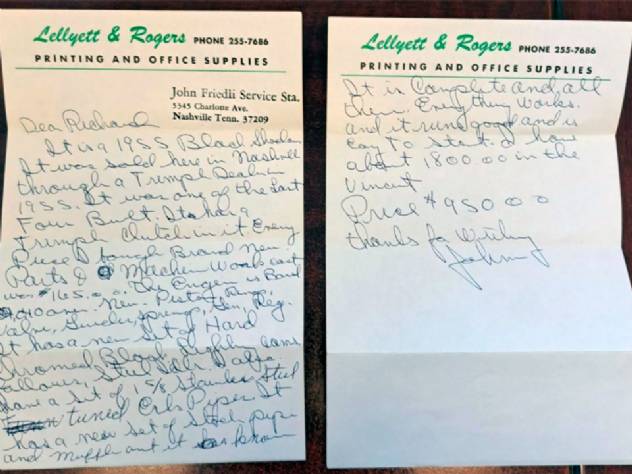 Lellyett & Rogers PHONE 255-7686
PRINTING AND OFFICE SUPPLIES
John Friedli Service Sta.
5345 Charlotte Ave.
Nashville Tenn. 37209
Dear Richard
It is a 1955 Black Shadow
It was sold here in Nashvill
through a Trumph Dealer in
1955. It was one of the Last
Four Built. It has a
Trumph clutch in it Every
Piece I bough Brand New
Parts & Machine Work cost
was $165.00. The Engine is Bored
New Piston, Rings,
Valve, Guides, springs,
It has a new set of Hard
Chromed Black cams
Steel I also
have a set of 1 5/8 Stainless Steel
tuned Pipes It
has a new set of Stock pipe
and Muffler on it
Lellyett & Rogers PHONE 255-7686
PRINTING AND OFFICE SUPPLIES
It is Complete and all
there. Everything Works.
and it runs good and is
Easy To start. I have
about 1800 00 in the
Vincent
Price $950 00
thanks for Writing
Johnny